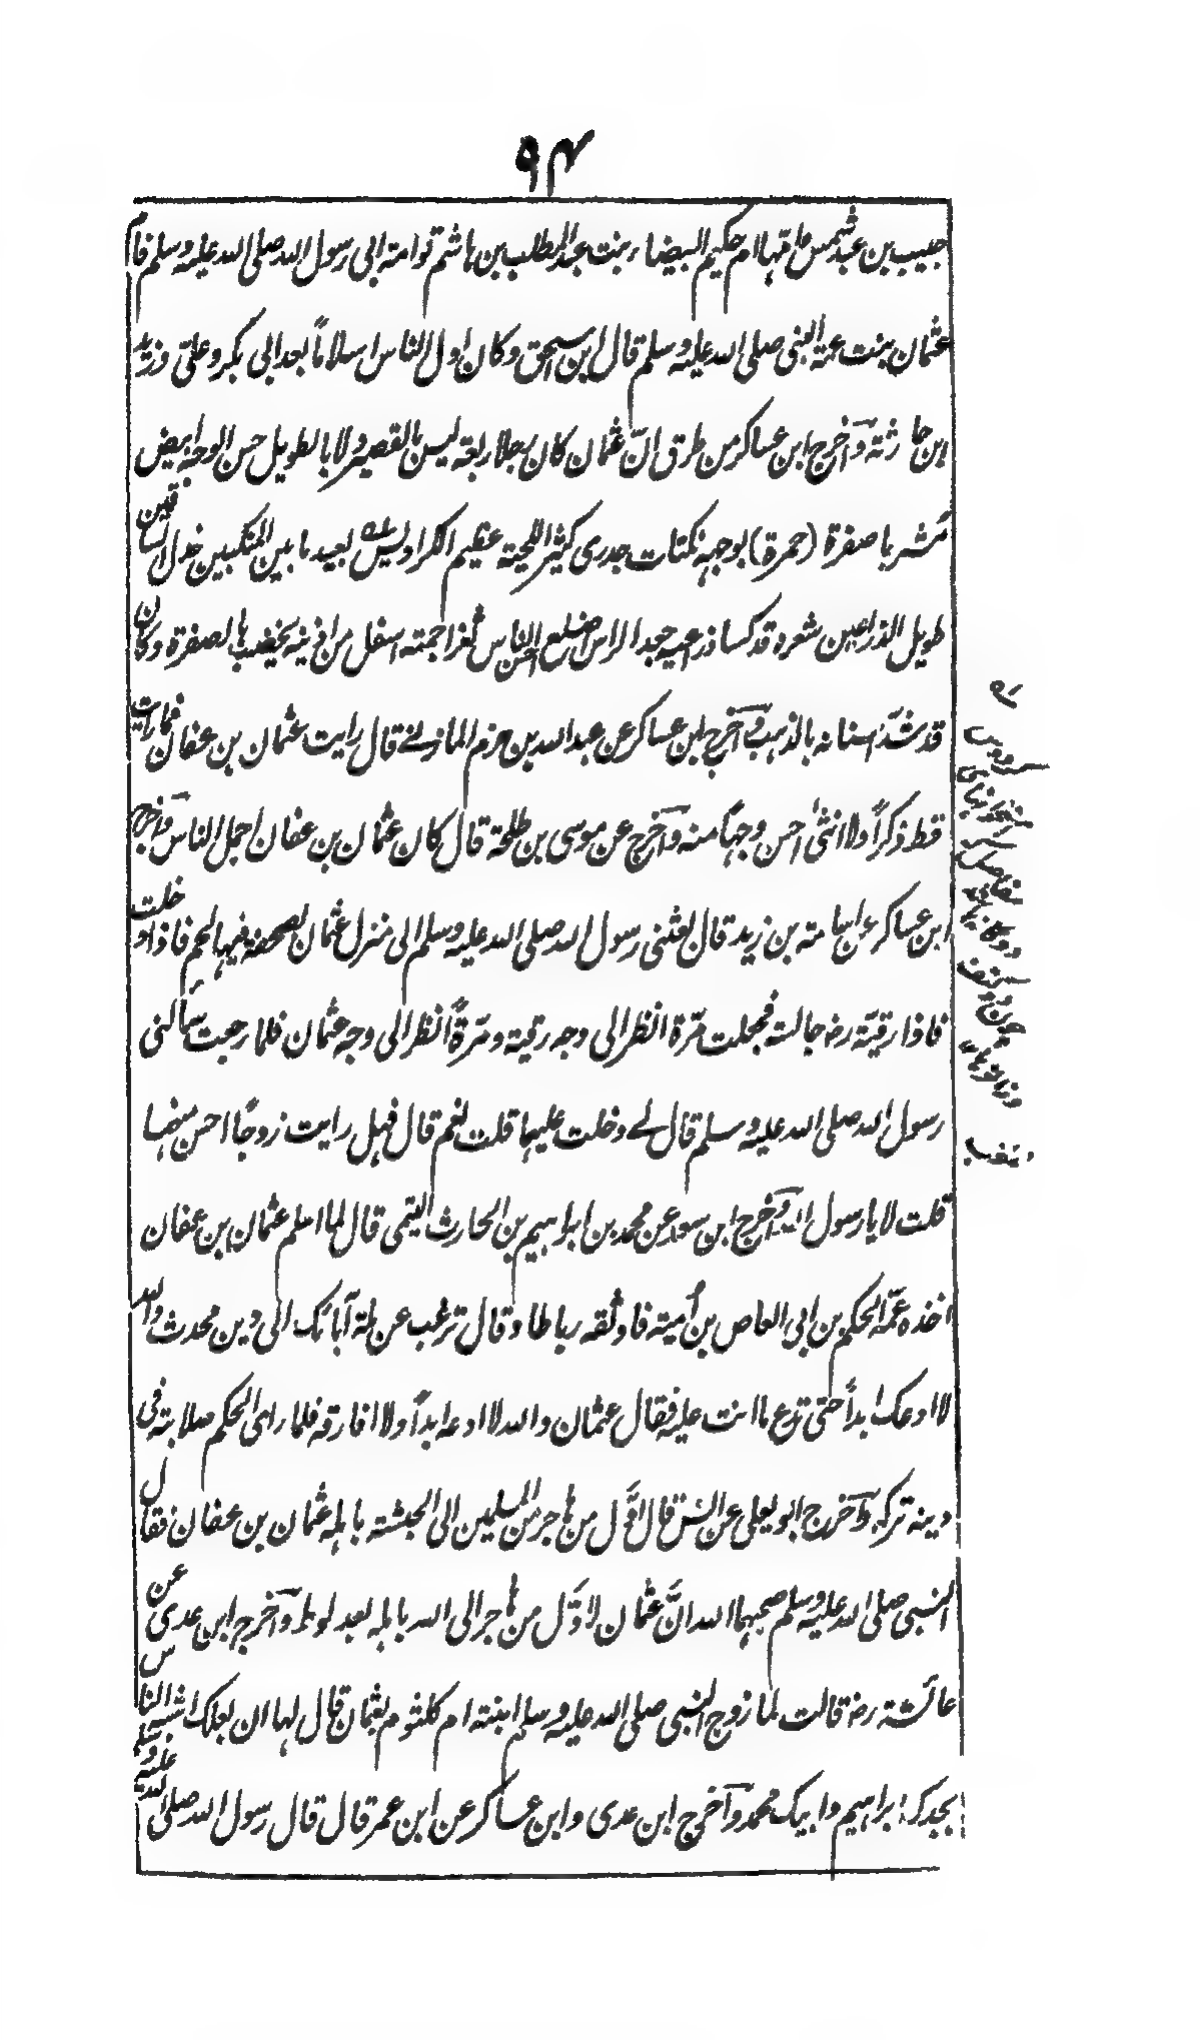 ٩٤
حبيب بن عبد شمس وامّها ام حكيم البيضاء بنت عبد المطلب بن هاشم توامة ابى رسول الله صلى الله عليه وسلم فام
عثمان بنت عمة النبى صلى الله عليه وسلم قال ابن اسحق وكان اول الناس اسلامًا بعد ابى بكر وعلى وزيد
ابن حارثة وآخرج ابن عساكر من طرق انّ عثمان كان رجلا ربعة ليس بالقصير ولا بالطويل حسن الوجه ابيض
مشربا صفرة (حمرة) بوجهه نكتات جدرى كثير اللحية عظيم الكراديس بعيد ما بين المنكبين خدل الساقين
طويل الذراعين شعره قد كسا ذراعيه جعد الراس اضلع احسن الناس ثغرا جمته اسفل من اذنيه يخضب بالصفرة وكان
قد شدّ اسنانه بالذهب وآخرج ابن عساكر عن عبد الله بن حزم المازنى قال رايت عثمان بن عفان فما رايت
قط ذكرًا ولا انثى احسن وجهًا منه وآخرج عن موسى بن طلحة قال كان عثمان بن عفان اجمل الناس وآخرج
ابن عساكر عن اسامة بن زيد قال بعثنى رسول الله صلى الله عليه وسلم الى منزل عثمان بصحفة فيها لحم فاذا دخلت
فاذا رقيّة رض جالسة فجعلت مرّة انظر الى وجه رقية ومرّةً انظر الى وجه عثمان فلما رجعت سألنى
رسول الله صلى الله عليه وسلم قال لے دخلت عليها قلت نعم قال فهل رايت زوجًا احسن منهما
قلت لا يا رسول الله وآخرج ابن سعد عن محمد بن ابراهيم بن الحارث التيمى قال لما اسلم عثمان ابن عفان
اخذه عمّه الحكم بن ابى العاص بن اُمية فاوثقه رباطا وقال ترغب عن ملة آبائك الى دين محدث والله
لا ادعك ابدًا حتى تدع ما انت عليه فقال عثمان والله لا ادعه ابدًا ولا افارقه فلما راى الحكم صلابته فى
دينه تركه وآخرج ابو يعلى عن انس قال اوّل من هاجر من المسلمين الى الحبشة باهله عثمان بن عفان فقال
النبى صلى الله عليه وسلم صحبهما الله انّ عثمان لاوّل من هاجر الى الله باهله بعد لوط وآخرج ابن عدى عن
عائشة رض قالت لما زوج النبى صلى الله عليه وسلم ابنته ام كلثوم بعثمان قال لها ان بعلك اشبه الناس
بجدك ابراهيم وابيك محمد وآخرج ابن عدى وابن عساكر عن ابن عمر قال قال رسول الله صلى الله عليه وسلم